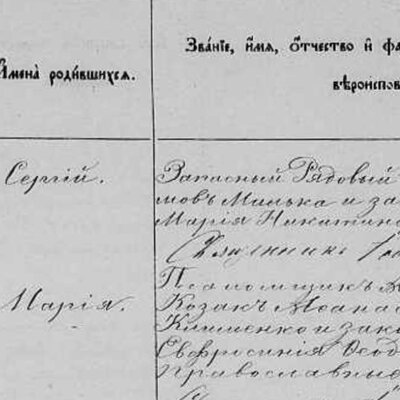 Имена̀ роди́вшихся.
Зва́нїе, и҆́мѧ, ѻ҆́тчество и҆ фа
вѣроиспов
Сергій.
Запасный Рядовый
мовъ Милька и за
Марія Никитина
Священникъ
Марія.
Псаломщикъ
Козакъ Аѳанас
Клименко и зако
Евфросинія Ѳеод
православные